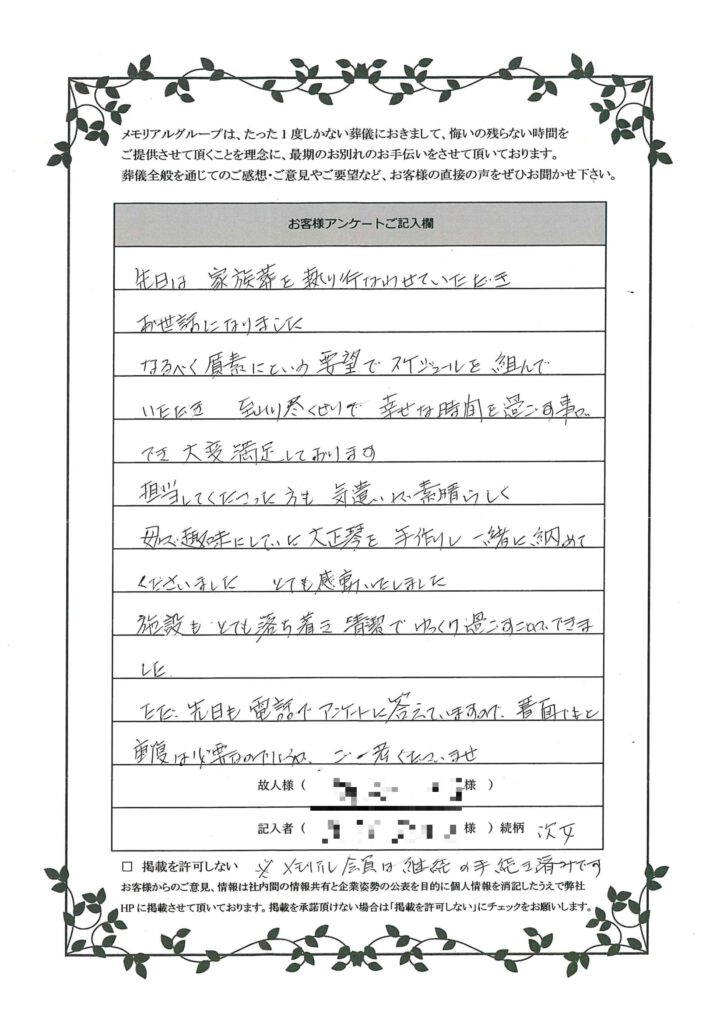 メモリアルグループは、たった１度しかない葬儀におきまして、悔いの残らない時間を
ご提供させて頂くことを理念に、最期のお別れのお手伝いをさせて頂いております。
葬儀全般を通じてのご感想・ご意見やご要望など、お客様の直接の声をぜひお聞かせ下さい。
お客様アンケートご記入欄
先日は 家族葬を執り行なわせていただき
お世話になりました
なるべく質素にという要望でスケジュールを組んで
いただき 至れり尽くせりで 幸せな時間を過ごす事が
でき 大変満足しております
担当してくださった方も 気遣いが素晴らしく
母が趣味にしていた大正琴を 手作りし 一緒に納めて
くださいました とても感動いたしました
施設も とても落ち着き 清潔で ゆっくり過ごすことができま
した
ただ、先日も電話でアンケートに答えていますので、書面でまと
重複は必要なのでしょうか、 ご一考くださいませ
故人様（ 様 ）
記入者（ 様 ）続柄 次女
□ 掲載を許可しない ※ メモリアル会員は継続の手続き済みです
お客様からのご意見、情報は社内間の情報共有と企業姿勢の公表を目的に個人情報を消記したうえで弊社
HPに掲載させて頂いております。掲載を承諾頂けない場合は「掲載を許可しない」にチェックをお願いします。